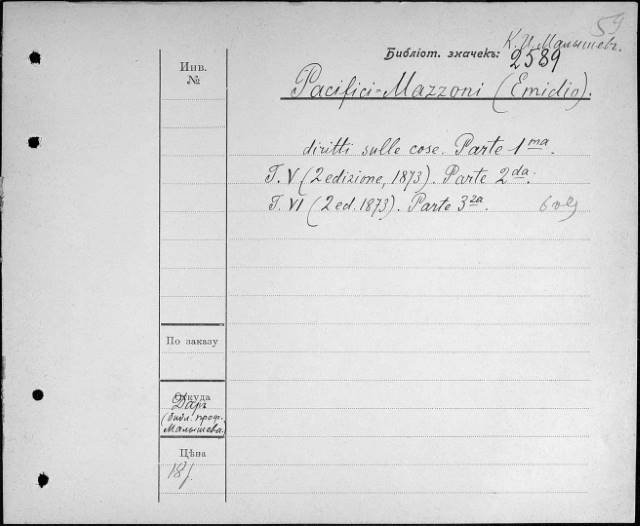 59
К. И. Малышевъ.
Библіот. значекъ:
2589
Инв.
№
Pacifici-Mazzoni (Emidio).
diritti sulle cose. Parte 1ma.
T. V (2 edizione, 1873). Parte 2da.
T. VI (2 ed. 1873). Parte 3za.
6 vol
По заказу
Откуда
Даръ
(библ. проф.
Малышева.)
Цѣна